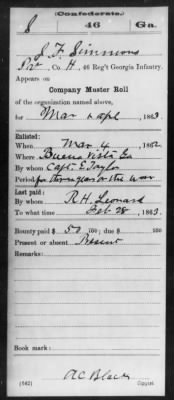 (Confederate.)
S 46 Ga.
J. F. Simmons
Pvt, Co. H, 46 Reg't Georgia Infantry.
Appears on
Company Muster Roll
of the organization named above,
for Mar & Apl, 1863.
Enlisted:
When Mar 4, 1862
Where Buena Vista Ga
By whom Capt. E. Taylor
Period for three years or the war
Last paid:
By whom R. H. Leonard
To what time Feb 28, 1863.
Bounty paid $ 50 100; due $ 100
Present or absent Present
Remarks:
Book mark:
R C Black
(642) Copyist.